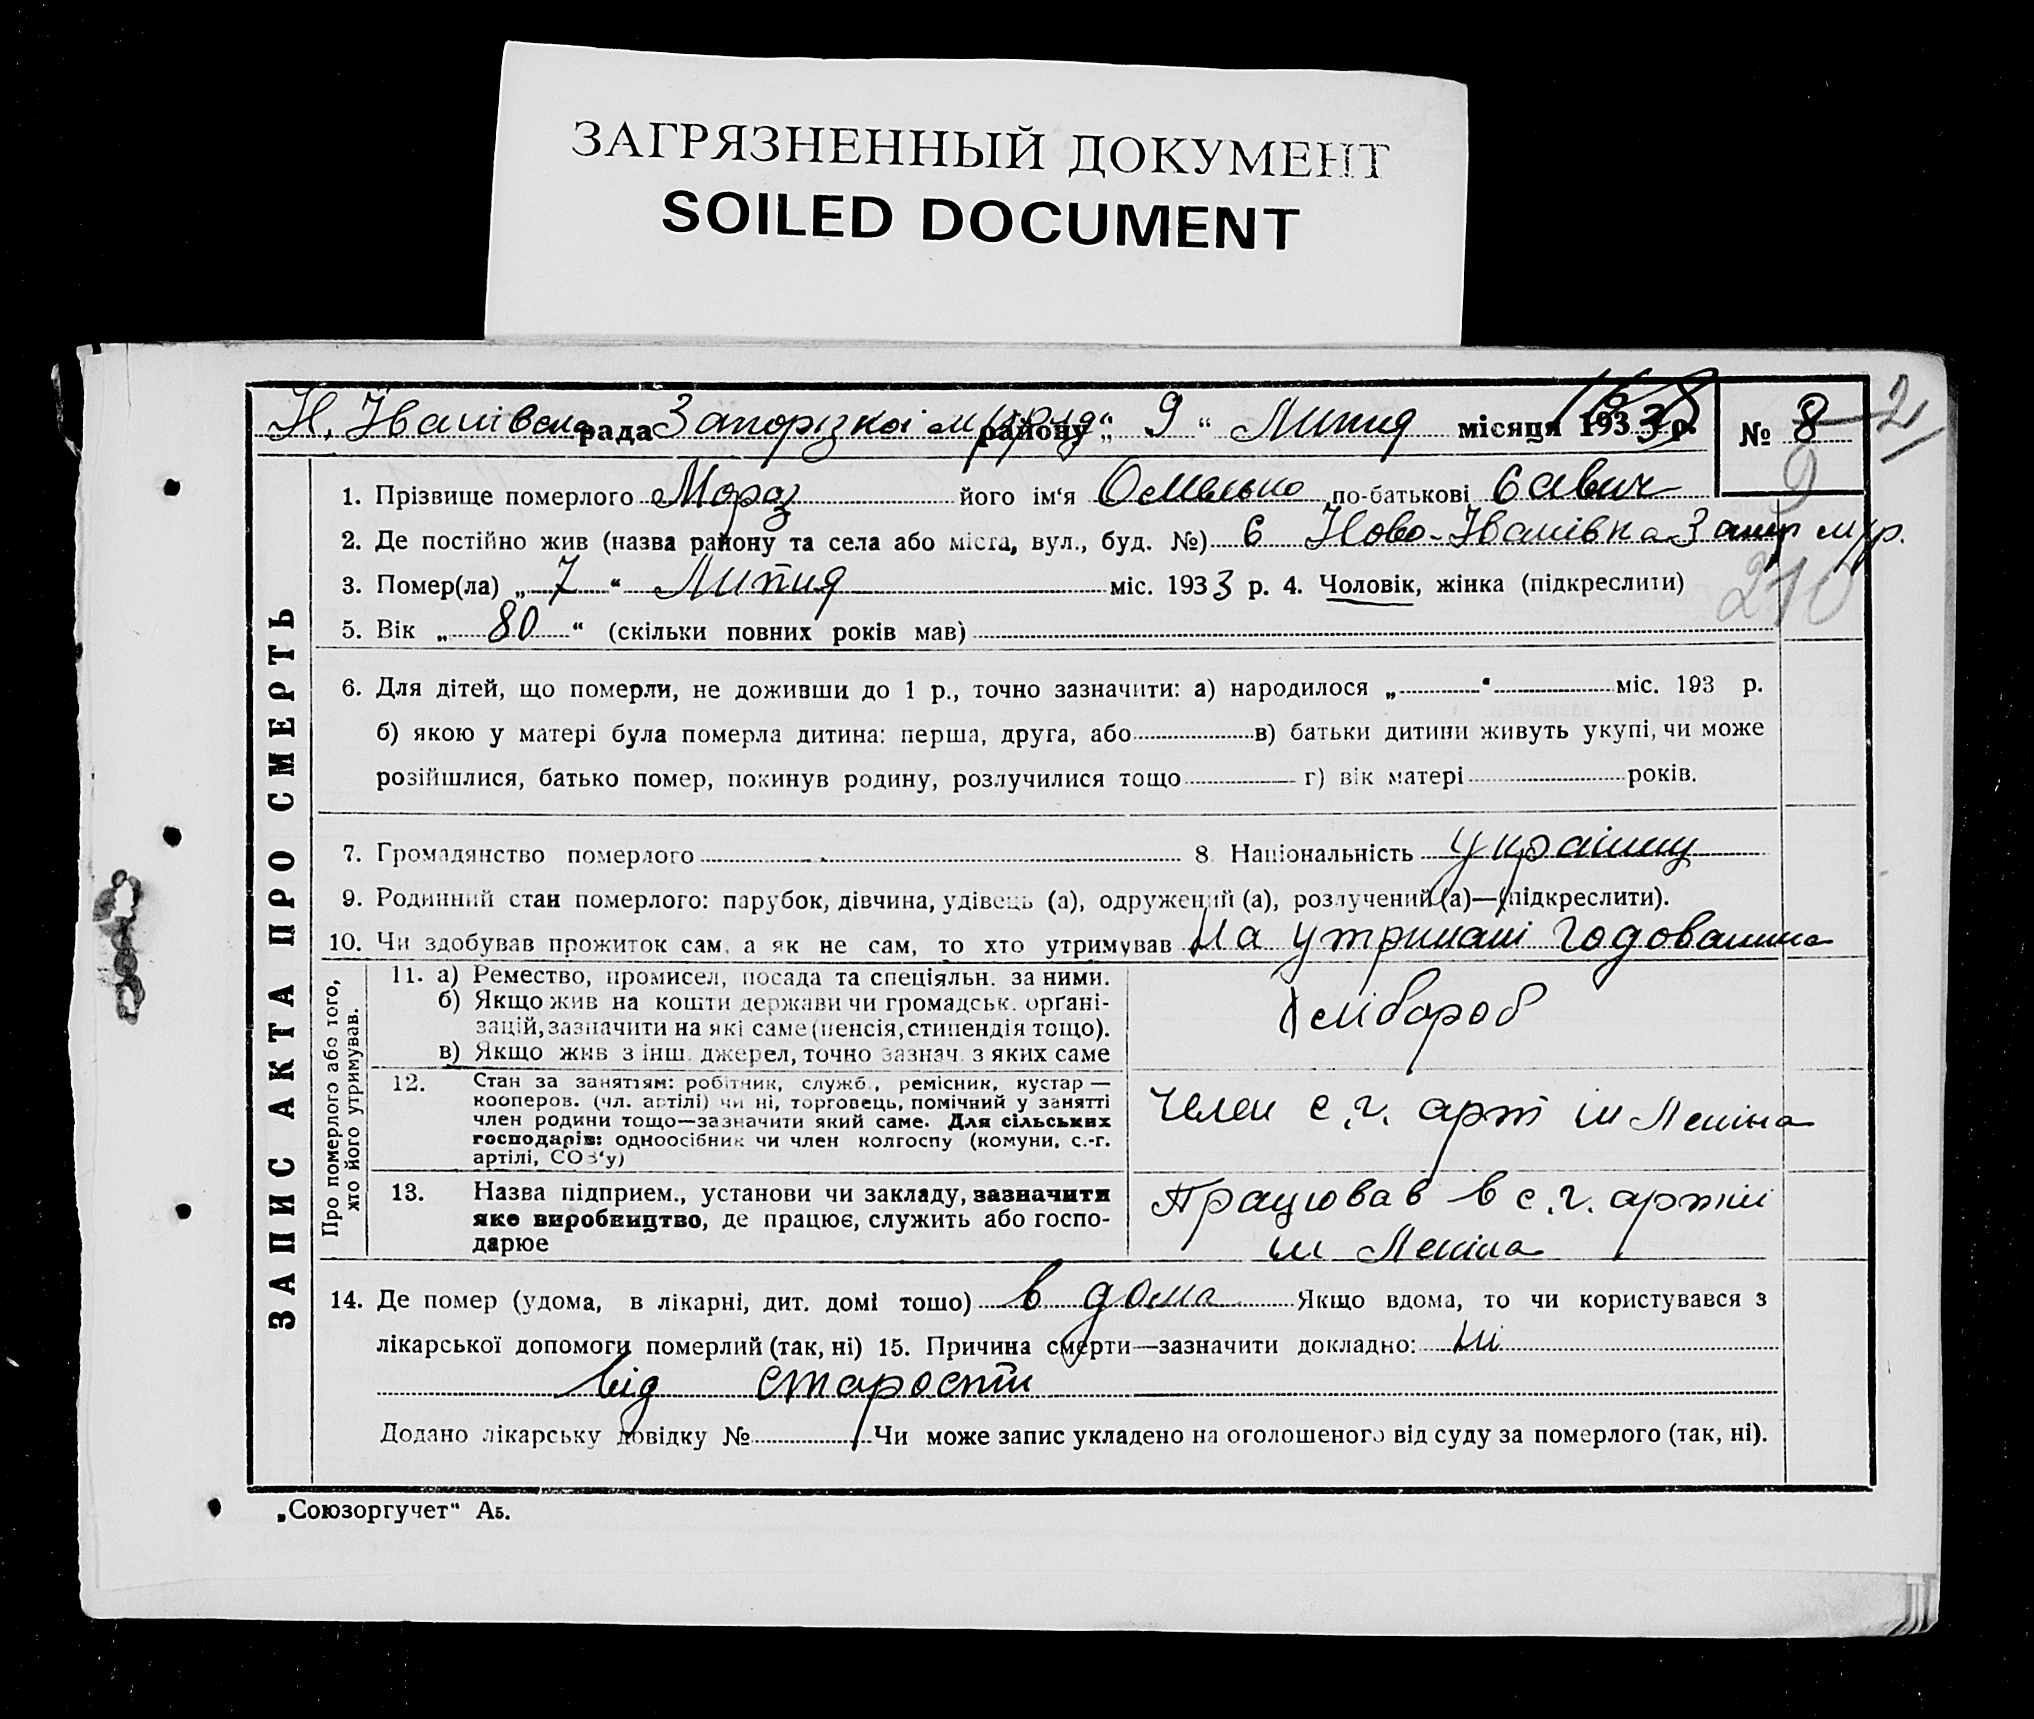 ЗАГРЯЗНЕННЫЙ ДОКУМЕНТ
SOILED DOCUMENT
Н. Іванівська рада Запорізкої району „ 9 “ Липня місяця 1933 р. № 8 21
9
1. Прізвище померлого Мороз його ім‘я Омелько по-батькові Савич
2. Де постійно жив (назва району та села або міста, вул., буд. №) с Ново-Іванівка Запор м/р.
3. Помер(ла) „ 7 “ Липня міс. 1933 р. 4. Чоловік, жінка (підкреслити)
210
5. Вік „ 80 “ (скільки повних років мав)
6. Для дітей, що померли, не доживши до 1 р., точно зазначити: а) народилося „ “ міс. 193 р.
б) якою у матері була померла дитина: перша, друга, або в) батьки дитини живуть укупі, чи може
розійшлися, батько помер, покинув родину, розлучилися тощо г) вік матері років.
7. Громадянство померлого 8 Національність українец
9. Родинний стан померлого: парубок, дівчина, удівець (а), одружений (а), розлучений (а)—(підкреслити).
10. Чи здобував прожиток сам, а як не сам, то хто утримував На утримані годованика
ЗАПИС АКТА ПРО СМЕРТЬ
Про померлого або того,
хто його утримував.
11. а) Ремество, промисел, посада та спеціяльн. за ними.
б) Якщо жив на кошти держави чи громадськ. орґані-
зацій, зазначити на які саме (пенсія, стипендія тощо).
в) Якщо жив з інш. джерел, точно зазнач. з яких саме
Хлібороб
12. Стан за заняттям: робітник, служб., ремісник, кустар —
кооперов. (чл. артілі) чи ні, торговець, помічний у занятті
член родини тощо—зазначити який саме. Для сільських
господарів: одноосібник чи член колгоспу (комуни, с.-г.
артілі, СОЗ‘у)
Челен с.г. арт ім Леніна
13. Назва підприєм., установи чи закладу, зазначити
яке виробництво, де працює, служить або госпо-
дарює
Працював в с.г. артілі
ім Леніна
14. Де помер (удома, в лікарні, дит. домі тощо) в дома Якщо вдома, то чи користувався з
лікарської допомоги померлий (так, ні) 15. Причина смерти—зазначити докладно: ні
від старости
Додано лікарську довідку № Чи може запис укладено на оголошеного від суду за померлого (так, ні).
„Союзоргучет“ А5.